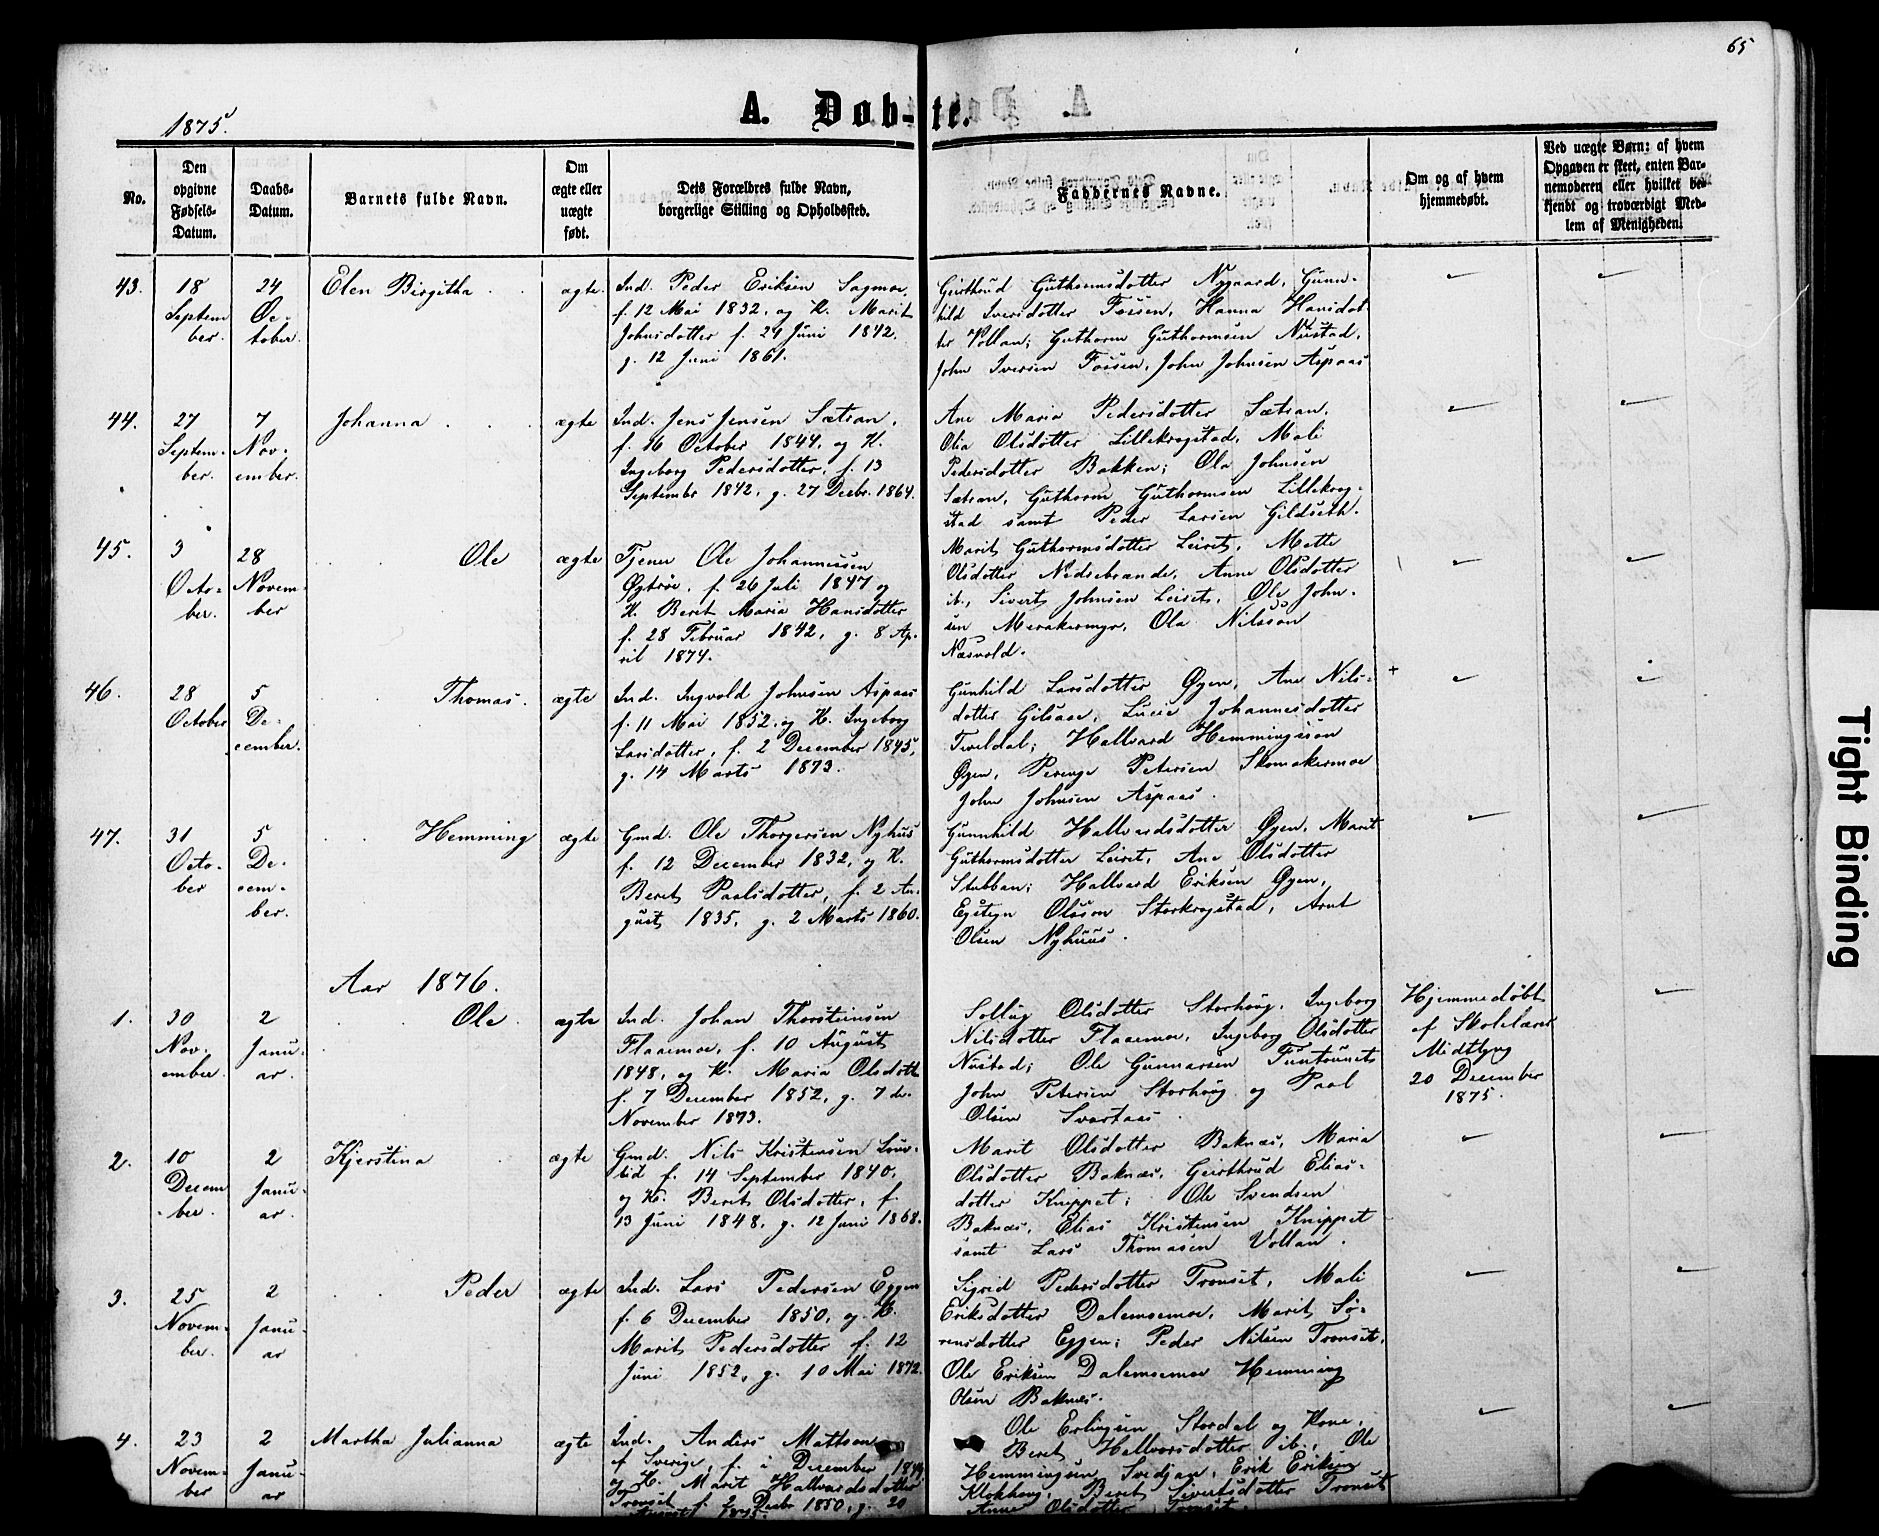 65
1875.
A. Døb-te.
No.
Den opgivne Fødsels-Datum.
Daabs-Datum.
Barnets fulde Navn.
Om ægte eller uægte født.
Dets Forældres fulde Navn, borgerlige Stilling og Opholdssted.
Faddernes Navne.
Om og af hvem hjemmedøbt.
Ved uægte Børn: af hvem Opgaven er skeet, enten Barnemoderen eller hvilket bekjendt og troværdigt Medlem af Menigheden.
43.
18 September.
24 October.
Elen Birgitha
ægte.
Ind. Peder Eriksen Sagmoe,
f. 12 Mai 1832, og K. Marit
Johnsdotter f. 24 Juni 1842.
g. 12 Juni 1861.
Geirthrud Guthormsdotter Nygaard, Gunn-
hild Iversdotter Fossen, Hanna Hansdot-
ter Vollan; Guthorm Guthormsen Nustad,
John Iversen Fossen, John Johnsen Aspaas
44.
27 September.
7 November.
Johanna
ægte
Ind. Jens Jensen Sætran,
f. 16 October 1844, og K.
Ingeborg Pedersdotter, f. 13
Septembr 1842, g. 27 Decbr. 1864.
Ane Maria Pedersdotter Sætran,
Olia Olsdotter Lillekrogstad, Mali
Pedersdotter Bakken; Ola Johnsen
Sætran, Guthorm Guthormsen Lillekrog-
stad samt Peder Larsen Gildseth.
45.
3 October.
28 November
Ole
ægte
Tjener Ole Johannessen
f. 26 Juli 1847 og
K. Beret Maria Hansdotter
f. 28 Februar 1842, g. 8 Ap-
ril 1874.
Marit Guthormsdotter Leiret, Mette
Olsdotter Nedrebrande, Anne Olsdotter
ib., Sivert Johnsen Leiret, Ole John-
sen Merakermyr, Ola Nilsson
Næsvold.
46.
28 October
5 December.
Thomas.
ægte
Ind. Ingvold Johnsen Aspaas
f. 11 Mai 1852, og K. Ingeborg
Larsdotter, f. 2 December 1845,
g. 14 Marts 1873.
Gunhild Larsdotter Øyen, Ane Nils-
dotter Gilsaae, Lucie Johannesdotter
Teveldal; Hallvard Hemmingsson
Øyen, Petersen Skomakermoe
John Johnsen Aspaas.
47.
31 October
5 December.
Hemming
ægte
Gmd. Ole Thorgersen Nyhus
f. 12 December 1832, og K.
Beret Paalsdotter, f. 2 Au-
gust 1835, g. 2 Marts 1860.
Gunnhild Hallvardsdotter Øyen, Marit
Guthormsdotter Leiret, Ane Olsdotter
Stubban; Hallvard Eriksen Øyen,
Eystein Olsson Storkrogstad, Arnt
Olsen Nyhuus.
Aar 1876.
1.
30 November
2 Januar.
Ole
ægte
Ind. Johan Thorsteinsen
Flaaemoe, f. 10 August
1848, og K. Maria Olsdott
f. 7 December 1852, g. 7de
November 1873.
Sollug Olsdotter Storhoug, Ingeborg
Nilsdotter Flaaemoe, Ingeborg Olsdotter
Nustad; Ole Gunnarsen Funtaunet
John Petersen Storhoug og Paal
Olsen Svartaas.
Hjemmedøbt
af Skolelærer
Midtbyg
20 December
1875.
2.
10 December.
2 Januar.
Kjerstina
ægte
Gmd. Nils Kristensen
f. 14 September 1840,
og K. Beret Olsdotter, f.
13 Juni 1848, g. 12 Juni 1868.
Marit Olsdotter Baknæs, Maria
Olsdotter Baknæs, Geirthrud Elias-
dotter Knippet; Ole Svendsen
Baknæs, Elias Kristensen Knippet
samt Lars Thomasen Vollan.
3.
25 November.
2 Januar
Peder
ægte
Ind. Lars Pedersen Eggen
f. 6 December 1850, og K.
Marit Pedersdotter f. 12
Juni 1852, g. 10 Mai 1872.
Sigrid Pedersdotter Tronset, Mali
Eriksdotter Dalemsemoe, Marit Sø-
rensdotter Eggen; Peder Nilsen Tronset,
Ole Eriksen Dalemsemoe Hemming
Olsen Baknæs.
4.
23 November
2 Januar
Martha Julianna
ægte
Ind. Anders Mattson
f. i December
og K. Marit Hallvardsdotter
Tronset f. 2 Decbr 1850, g. 20
August
Ole Erlingsen Stordal og Kone,
Beret Hallvorsdotter ib., Ole
Hemmingsen Svedjan, Erik Eriksen
Klokhaug, Beret Sivertsdotter Tronset
Anne Olsdotter Tronset.
Tight Binding